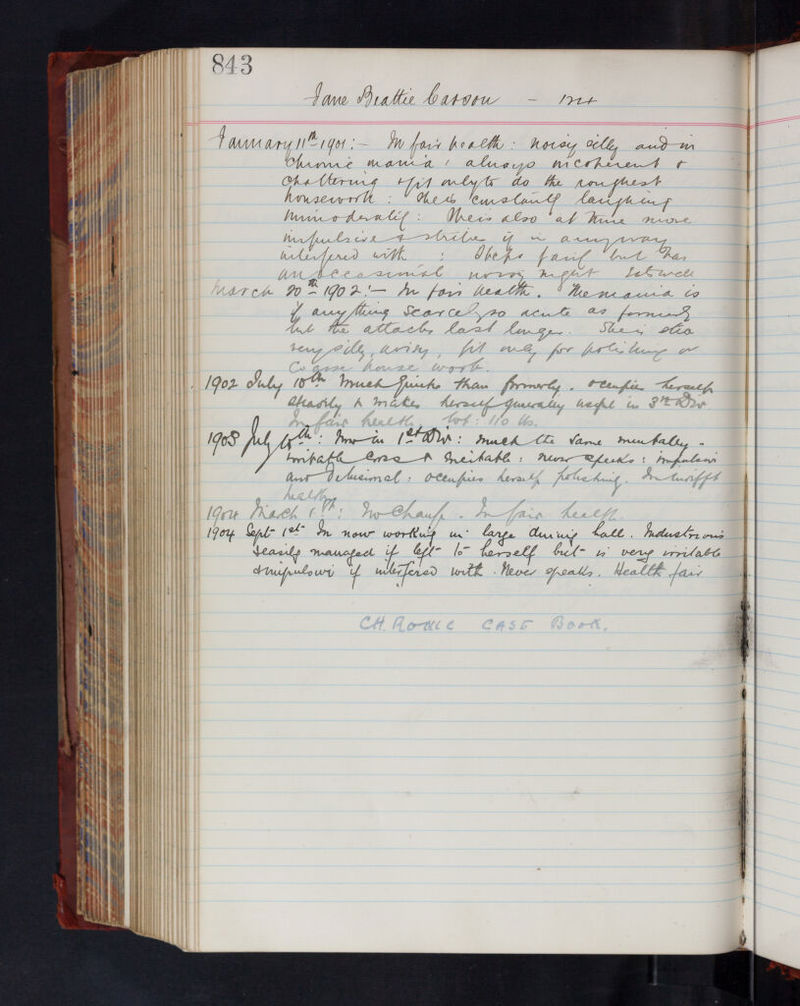 843
Jane Beattie Carson -
January 11th 1901:- In fair health: noisy silly and in
Chronic mania: always incoherent &
Chattering & fit only to do the roughest
housework: She is constantly laughing
immoderately: She is also at time more
impulsive & strikes if in anyway
interfered with: Sleeps fairly but has
an occasional noisy night
March 20th 1902:- In fair health. The mania is
if anything scarcely so acute as formerly
but the attacks last longer. She is also
very silly, noisy, fit only for polishing or
Coarse house work.
1902 July 10th Much quieter than formerly. occupies herself
steadily & makes herself generally useful in 3rd Div
In fair health. Wt: 110 lbs.
1903 July 10th: Now in 1st Div: much the same mentally -
irritable cross & excitable: never speaks: impulsive
and Delusional: occupies herself polishing. In indifft
health
1904 March 1st: No Change. In fair health.
1904 Sept 1st In now working in large dining hall. Industrious
& easily managed if left to herself but is very irritable
& impulsive if interfered with. Never speaks. Health fair
CHRONIC CASE Book.